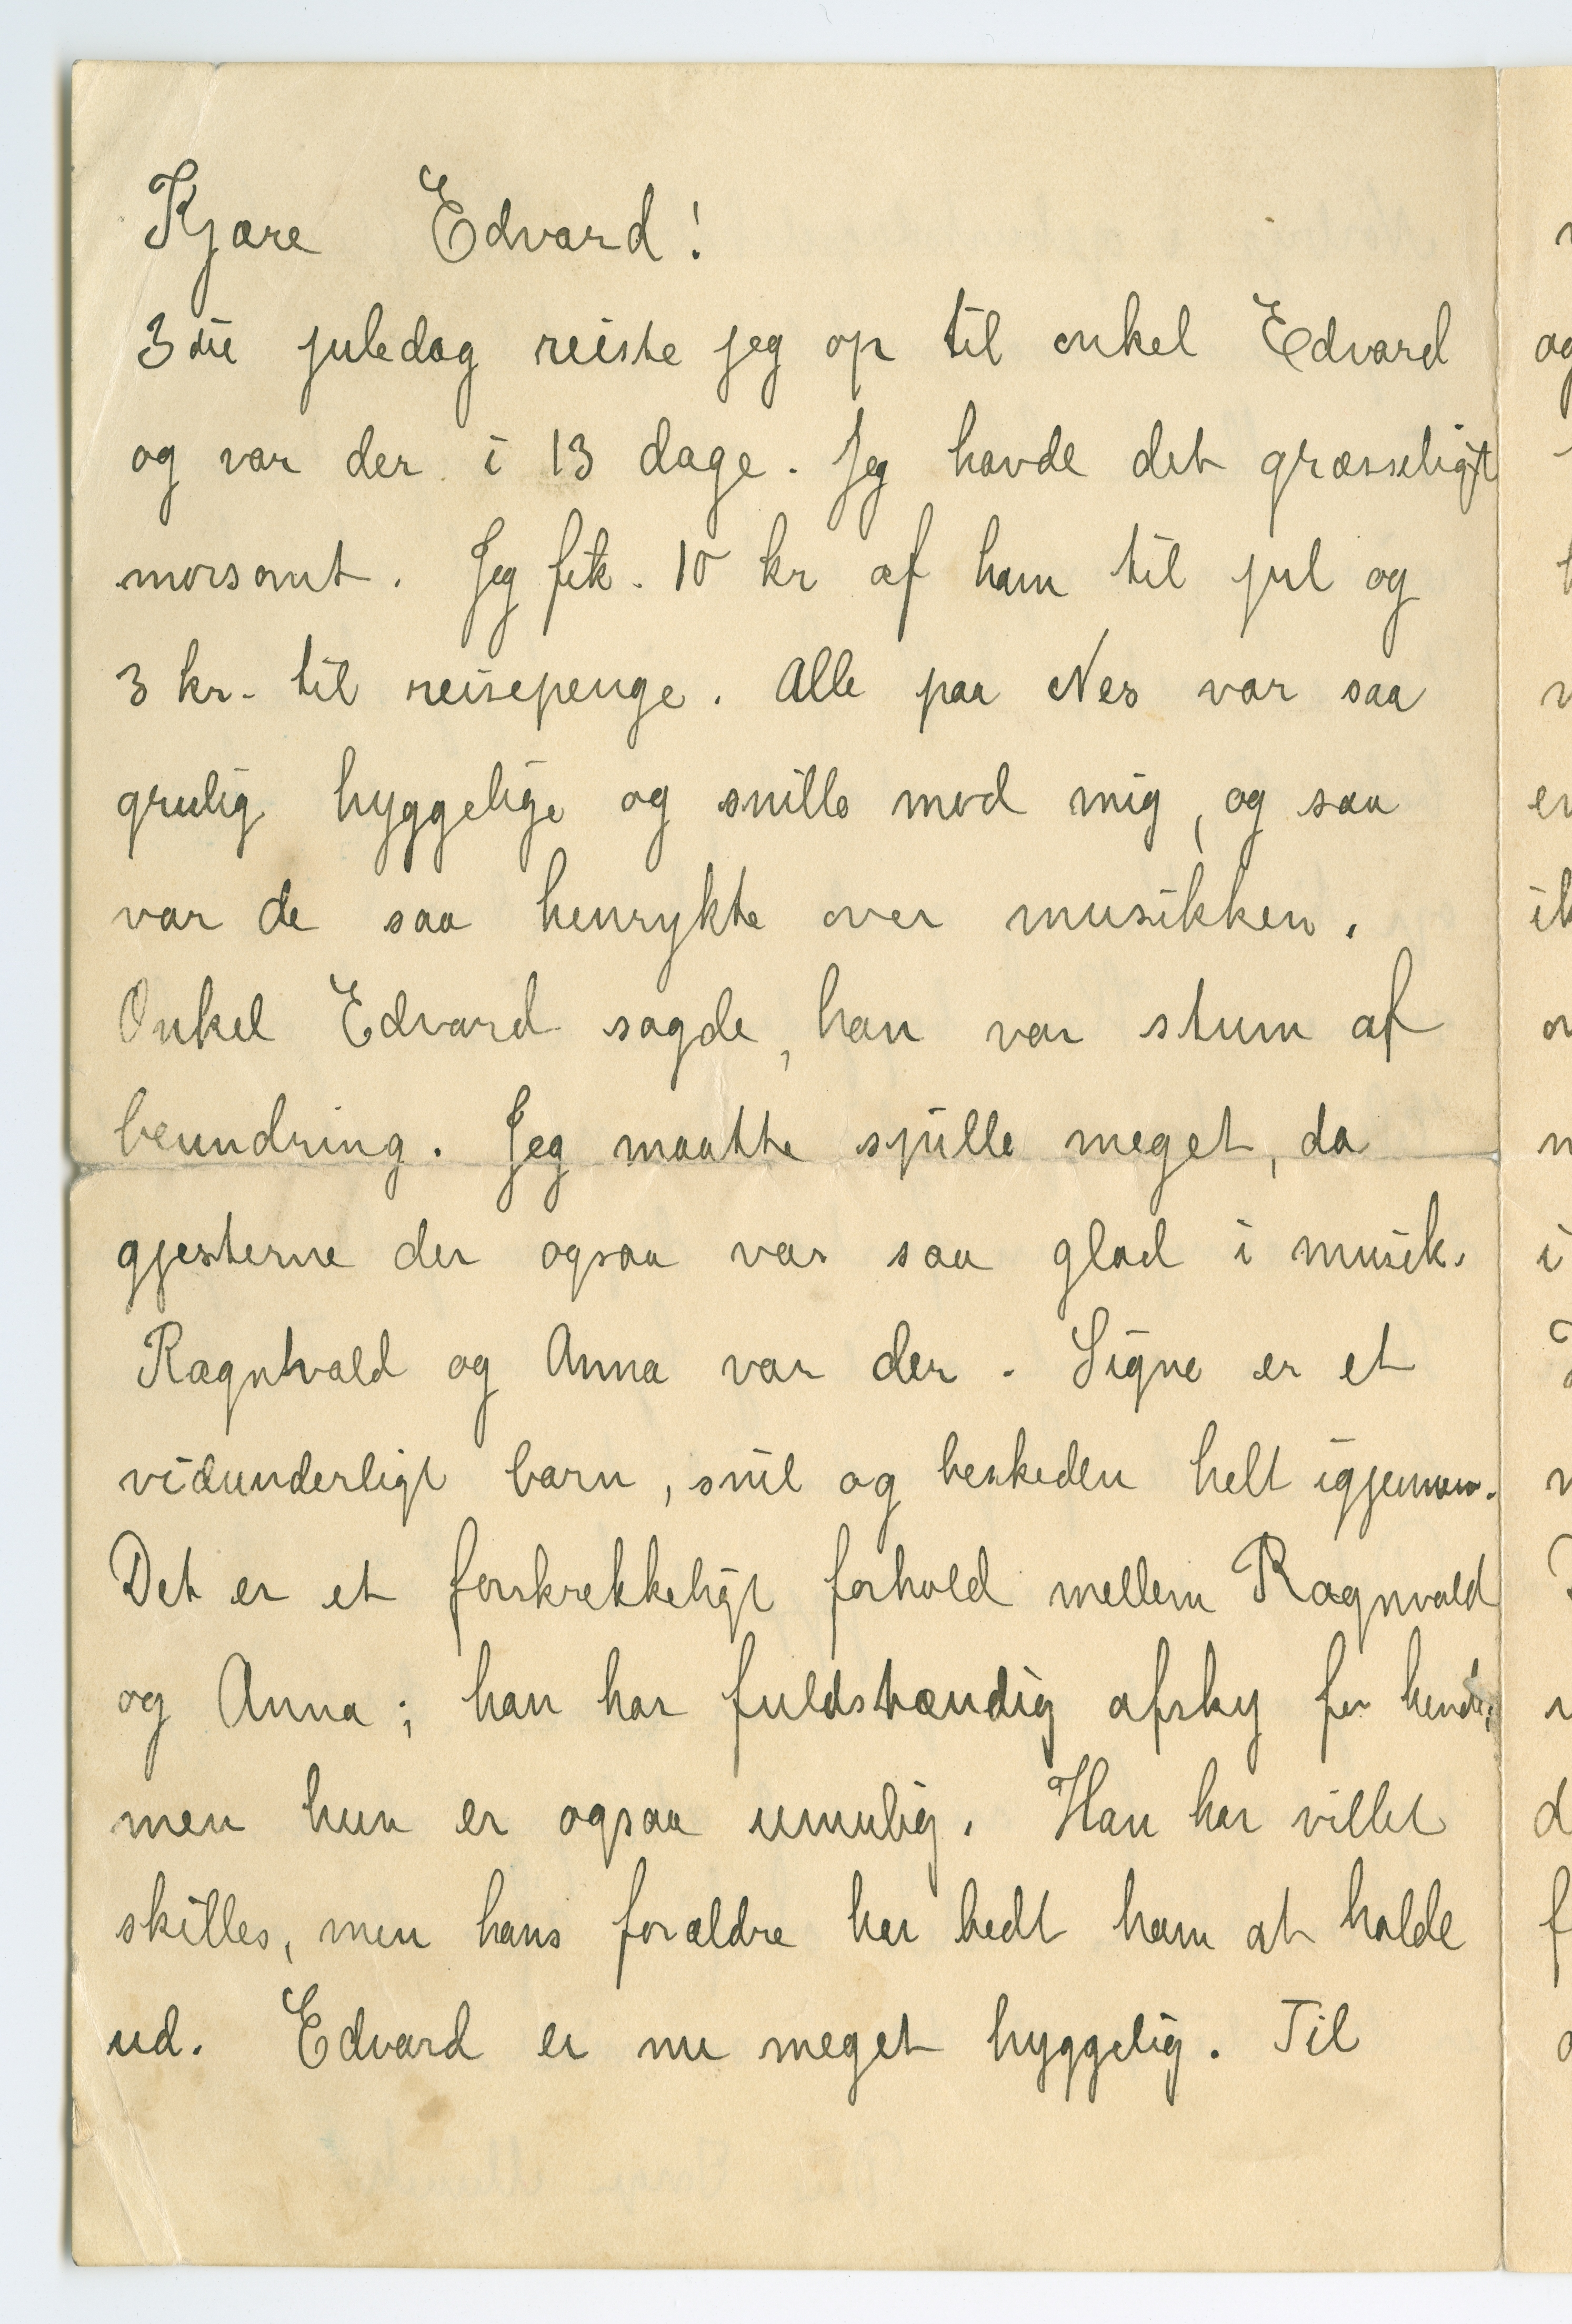 Kjære Edvard!
3die juledag reiste jeg op til onkel Edvard
og var der i 13 dage. Jeg havde det græsseligt
morsomt. Jeg fik. 10 kr af ham til jul og
3 kr. til reisepenge. Alle paa Nes var saa
grulig hyggelige og snille mod mig, og saa
var de saa henrykte over musikken.
Onkel Edvard sagde, han var stum af
beundring. Jeg maatte spille meget, da
gjesterne der ogsaa var saa glad i musik.
Ragnhvald og Anna var der. Signe er et
vidunderligt barn, snil og beskeden helt igjennem.
Det er et forskrekkeligt forhold mellem Ragnvald
og Anna; han har fuldstændig afsky for hende,
men hun er ogsaa umulig. Han har villet
skilles, men hans forældre har bedt ham at holde
ud. Edvard er nu meget hyggelig. Til